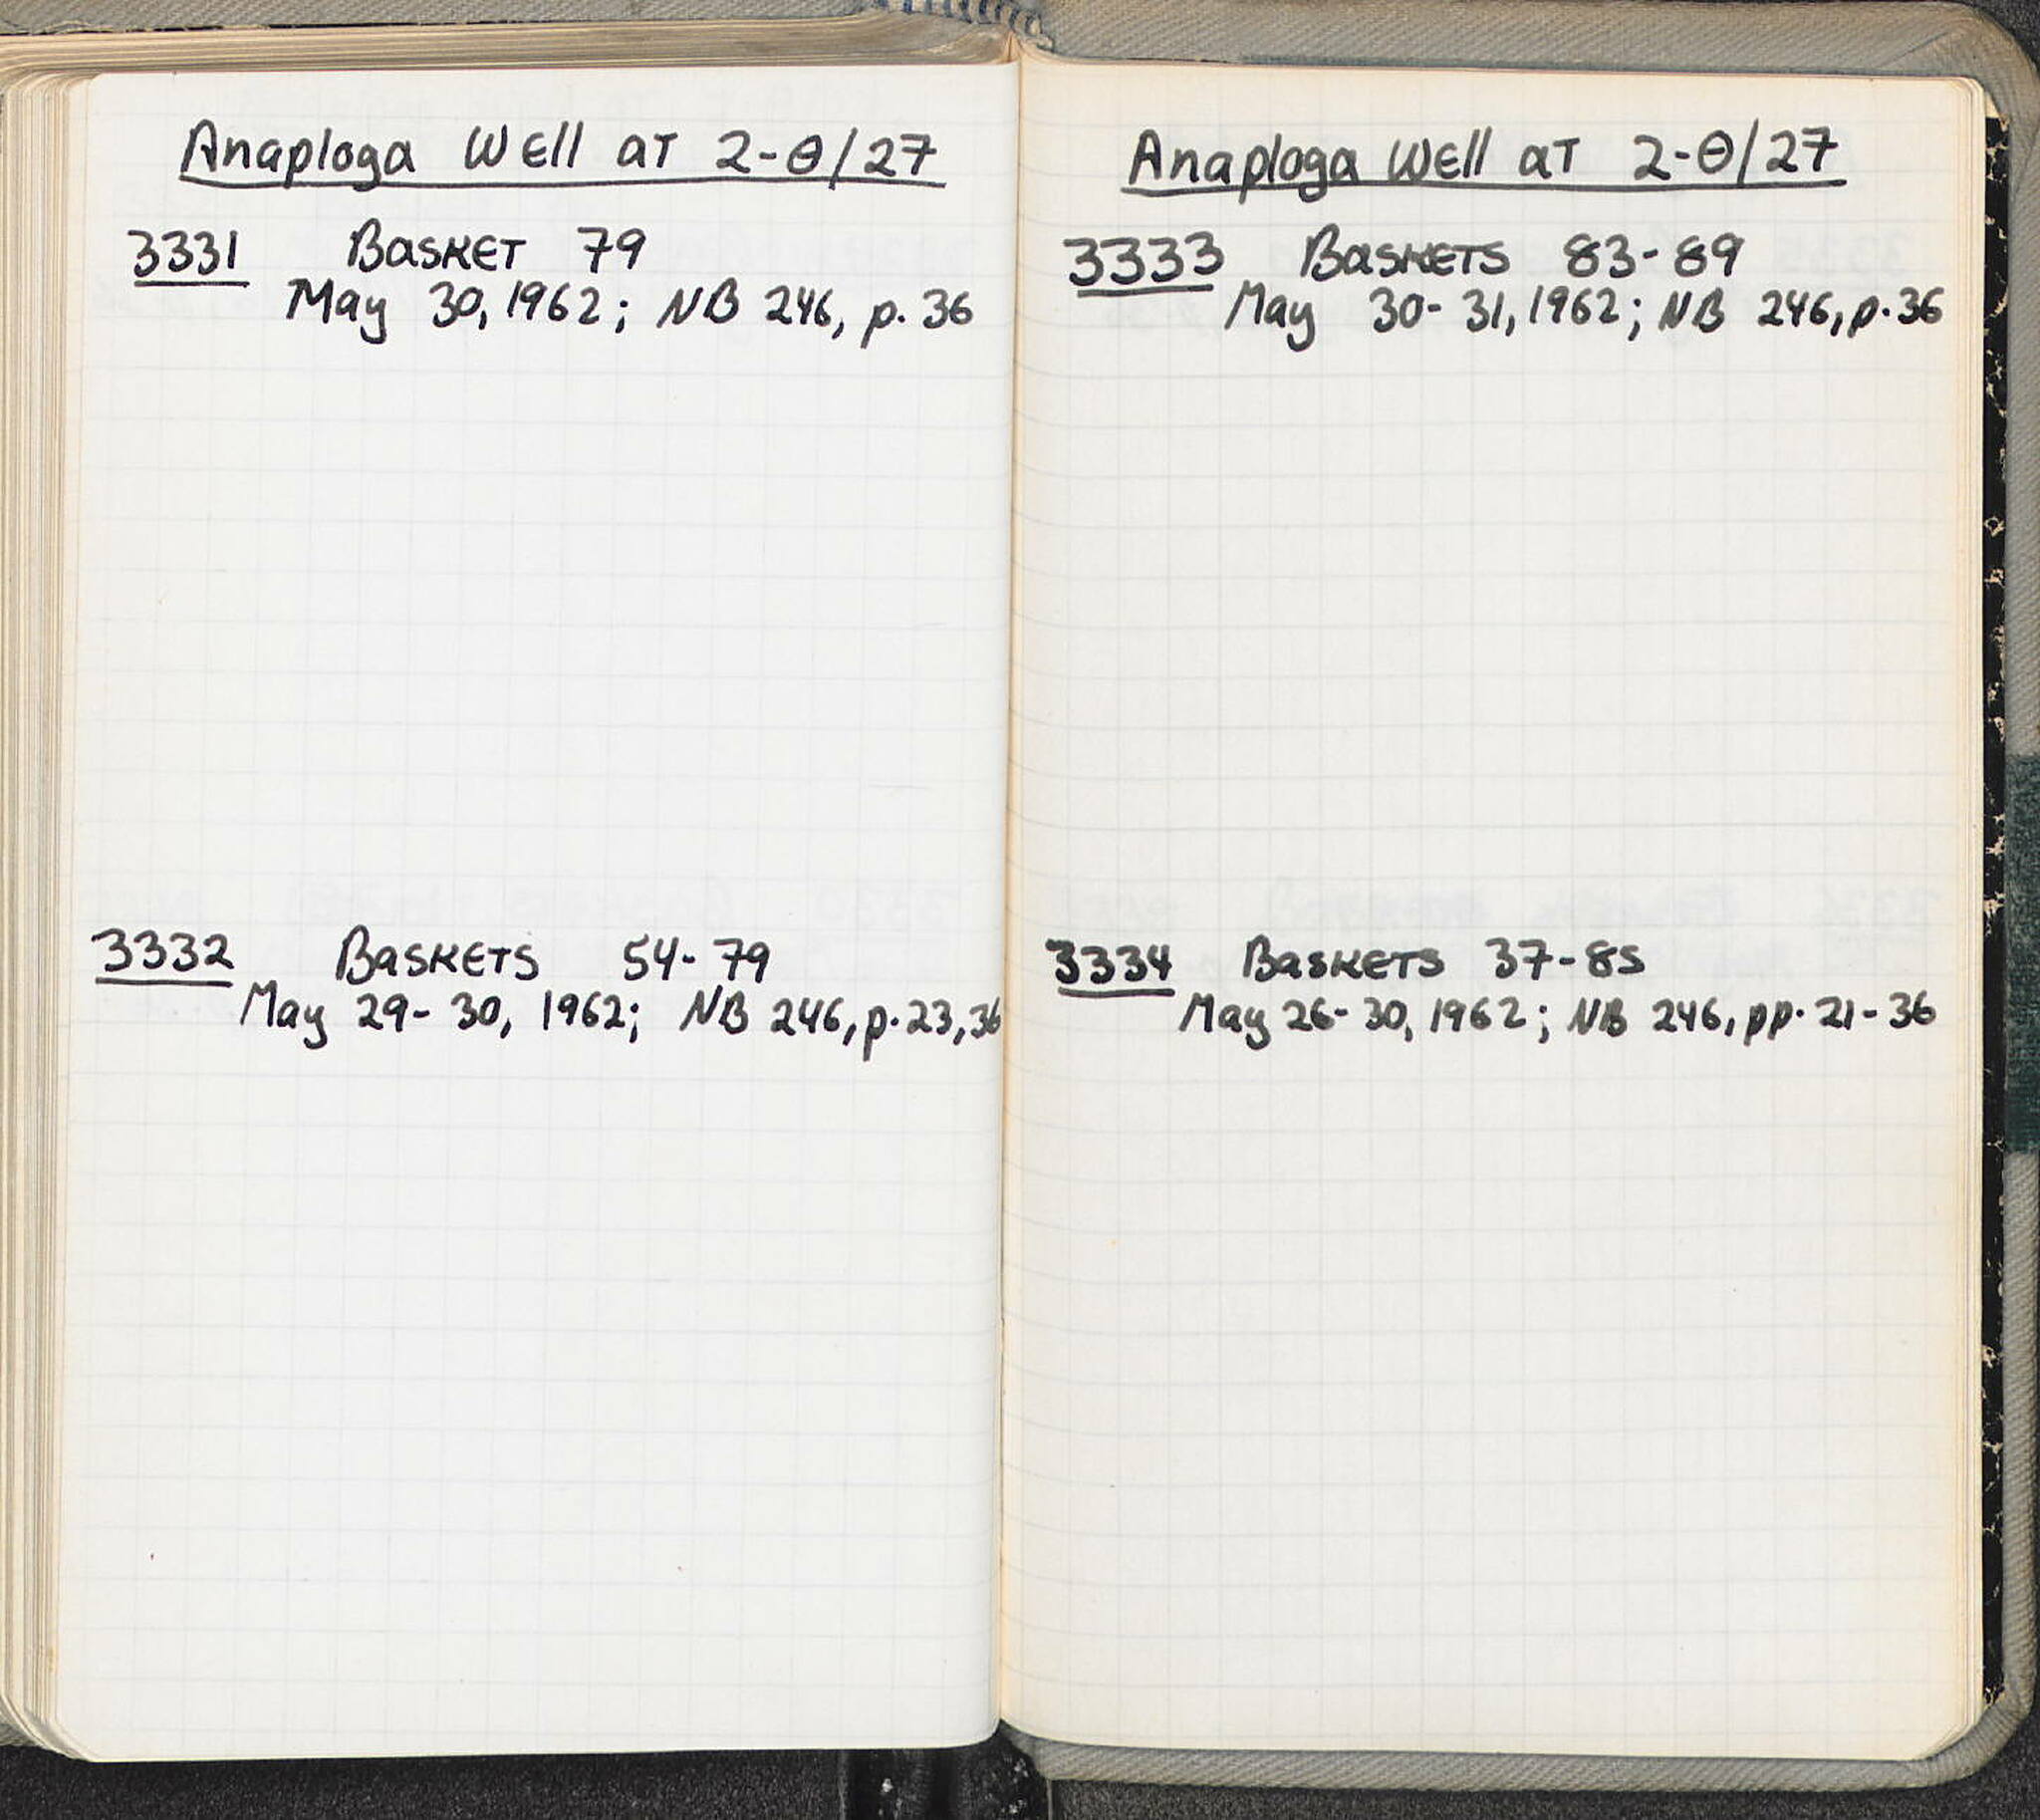 Anaploga Well at 2-Θ/27
3331 Basket 79
May 30, 1962; NB 246, p. 36
3332 Baskets 54-79
May 29-30, 1962; NB 246, p. 23, 36
Anaploga Well at 2-Θ/27
3333 Baskets 83-89
May 30-31, 1962; NB 246, p. 36
3334 Baskets 37-85
May 26-30, 1962; NB 246, pp. 21-36